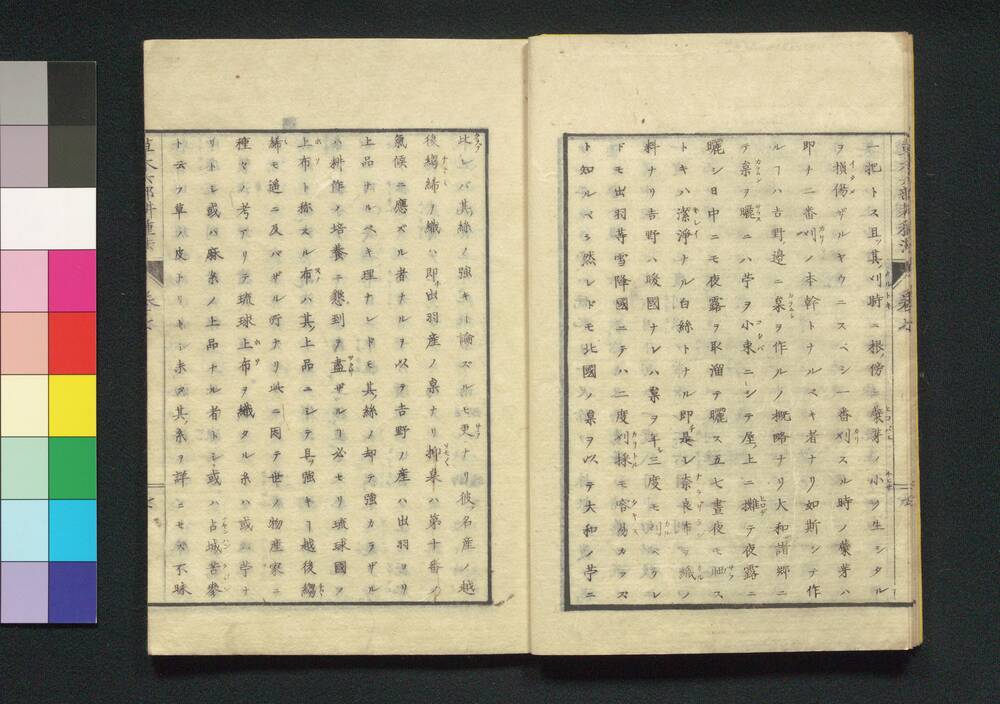 一把トス且其刈時ニ根ノ傍ニ蘖芽ノ小ク生シタル
ヲ損傷ザルヤウニスベシ一番刈スル時ノ蘖芽ハ
即チ二番刈ノ本幹トナルベキ者ナリ如斯シテ作
ルフハ吉野ノ邊ニ枲ヲ作ルノ概略ナリ大和諸郷ニ
テ枲ヲ曬ニハ苧ヲ小束ニシテ屋上ニ攤テ夜露ニ
曬シ日中ニモ夜露ヲ取溜テ曬ス五七晝夜モ曬ス
トキハ潔淨ナル白絲トナル即チ是レ奈良布ヲ織ル
料ナリ吉野ハ暖國ナレハ枲ヲ年ニ三度モ刈ベケレ
ドモ出羽等雪降國ニテハ二度刈採モ容易カラズ
ト知ルベシ然レドモ北國ノ枲ヲ以テ大和ノ苧ニ
比レバ其絲ノ強キ論ズルニモ更ナリ彼名産ノ越
後縐絺ノ織ハ即出羽産ノ枲ナリ抑枲ハ第十番ノ
氣候ニ應ベル者ナルヲ以テ吉野ノ産ハ出羽ヨリ
上品ナルベキ理ナレドモ其絲ノ却テ強カラザル
ハ耕作ノ培養ニ懇到ヲ盡ザルフ必セリ琉球國ヲ
上布ト稱スル布ハ其上品ニシテ且強キー越後縐
絺モ遥ニ及バザル所ナリ此ニ因テ世ノ物産家ニ
種々ノ考アリテ琉球上布ヲ織タル糸ハ或ハ苧ナ
リトシ或ハ麻糸ノ上品ナル者トシ或ハ占城苦參
ト云フ草ノ皮トリキシ糸ス其糸ヲ詳ニセズ不昧